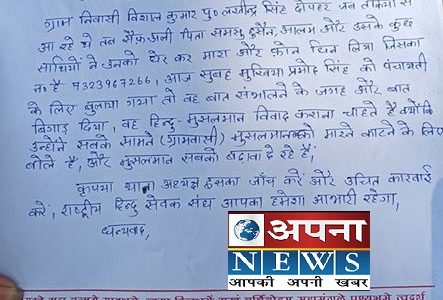 ग्राम निवासी विशाल कुमार पु० लखीन्द्र सिंह दोपहर जब तकिया से
आ रहे थे तब सैफ अली पिता समसु हुसैन, आलम और उसके कुछ
साथियों ने उनको घेर कर मारा और फोन छिन लिया जिसका
न० है 9323967266, आज सुबह मुखिया प्रमोद सिंह को पंचायती
के लिए बुलाया गया तो वह बात संभालने के जगह और बात
बिगाड़ दिया, वह हिन्दु-मुसलमान विवाद कराना चाहते हैं क्योंकि
उन्होंने सबके सामने (ग्रामवासी) मुसलमान को मारने काटने के लिए
बोले हैं, और मुसलमान सबको बढ़ावा दे रहे हैं,
कृपया थाना अध्यक्ष इसका जाँच करें और उचित कारवाई
करें, राष्ट्रीय हिन्दु सेवक संघ आपका हमेशा आभारी रहेगा,
धन्यवाद,
अपना
NEWS
आपकी अपनी खबर